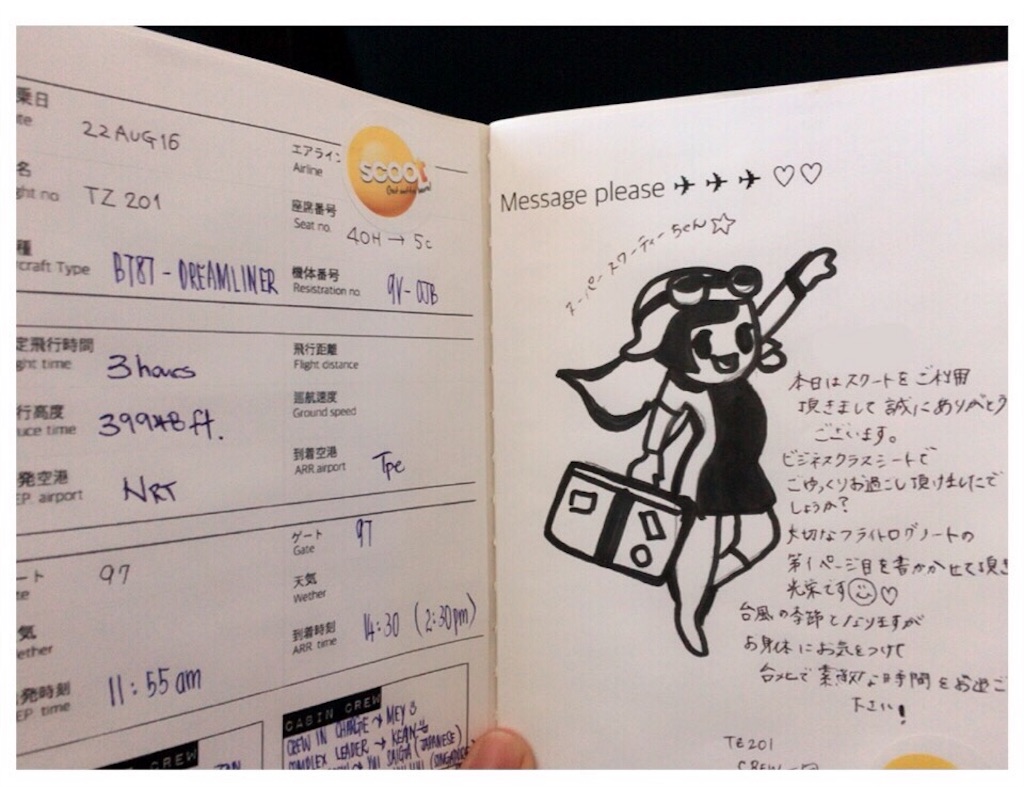 乗日
22 AUG 16
エアライン
Airline
scoot
名
ght no
TZ 201
座席番号
Seat no.
40H → 5c
種
rcraft Type
B787 - DREAMLINER
機体番号
Resistration no.
9V-OJB
定飛行時間
ght time
3 hours
飛行距離
Flight distance
行高度
uce time
ft.
巡航速度
Ground speed
発空港
EP. airport
NRT
到着空港
ARR airport
Tpe
ート
97
ゲート
Gate
97
気
ether
天気
Wether
発時刻
EP time
11:55 am
到着時刻
ARR time
14:30 (2:30pm)
CREW
CABIN CREW
CREW IN CHARGE → MEY
COMPLEX LEADER → KEAN
YUI SAIGA (JAPANESE)
Message please ✈ ✈ ✈ ♡♡
スーパースクーティーちゃん☆
本日はスクートをご利用
頂きまして誠にありがとう
ございます。
ビジネスクラスシートで
ごゆっくりお過ごし頂けましたで
しょうか?
大切なフライトログノートの
第1ページ目を書かせて頂き
光栄です☺♡
台風の季節となりますが
お身体にお気をつけて
台北で素敵な時間をお過ご
下さい!
TZ201
CREW